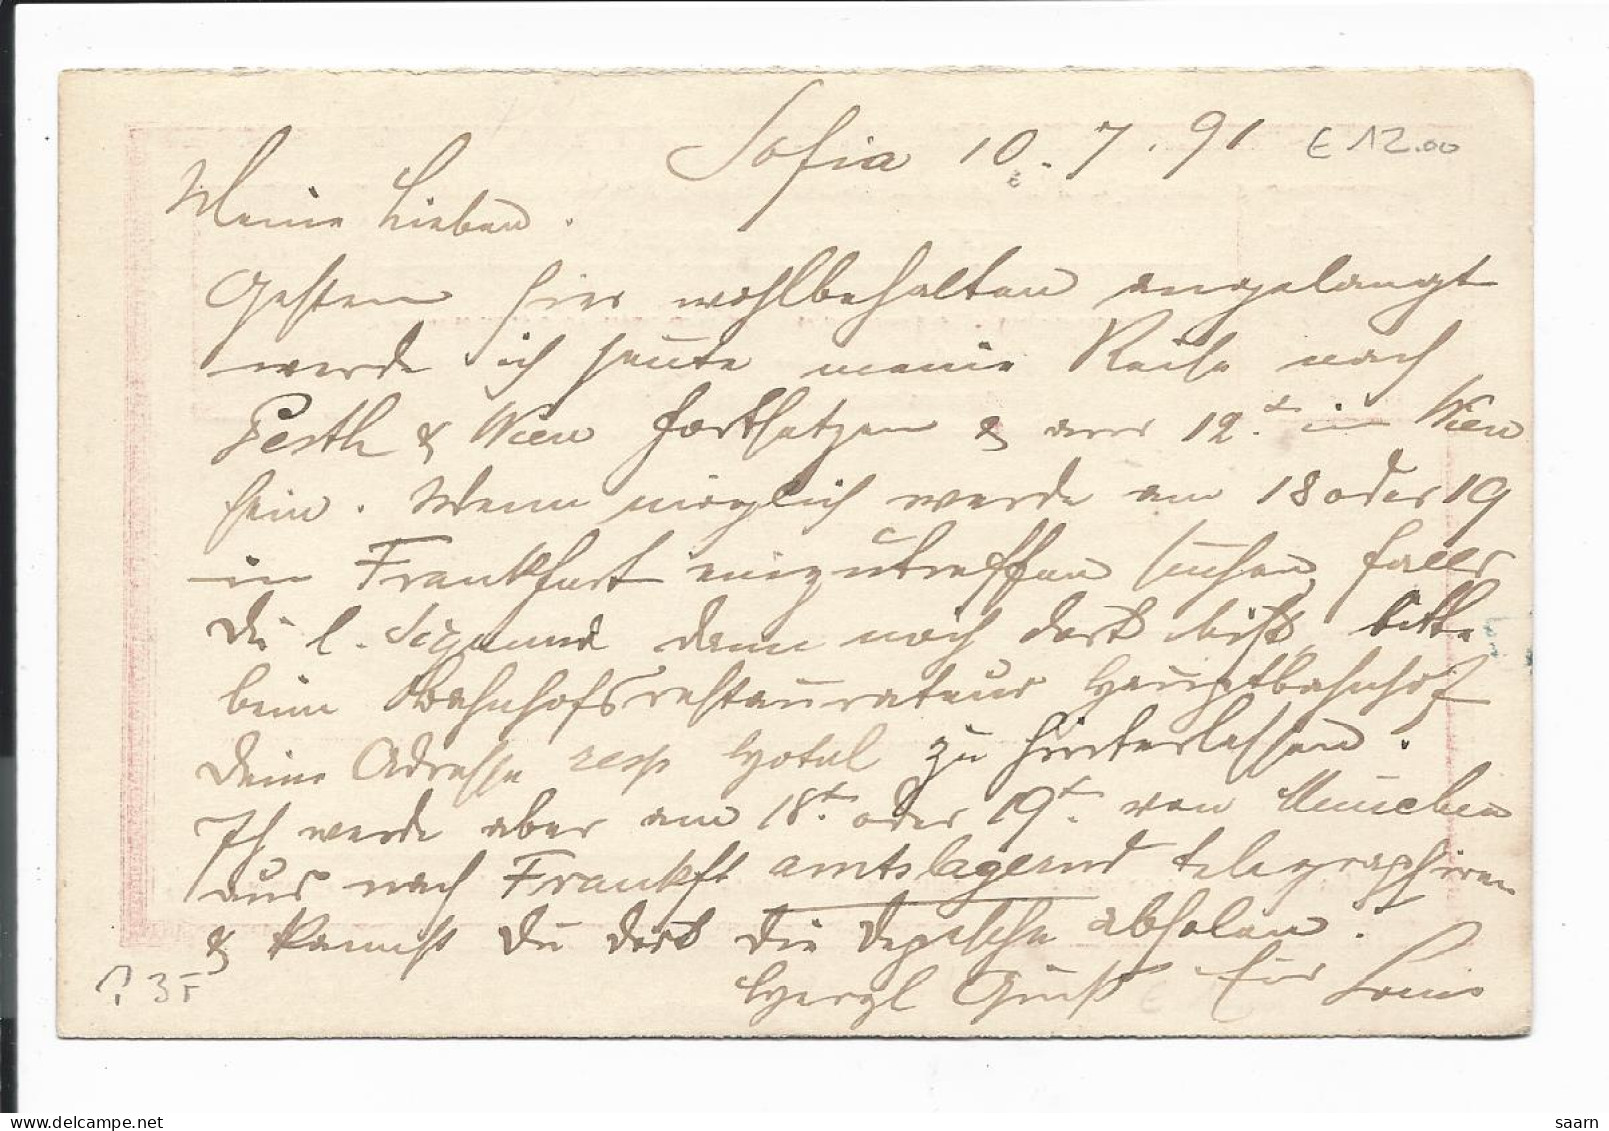 Sofia 10.7.91 € 12.00
Meine Lieben.
Gestern hier wohlbehalten angelangt
werde ich heute meine Reise nach
Pesth & Wien fortsetzen & am 12.t in Wien
sein. Wenn möglich werde am 18 oder 19
in Frankfurt einzutreffen suchen, falls
Du l. Sigmund dann noch dort bist, bitte
beim Bahnhofsrestaurateur Hauptbahnhof
Deine Adresse resp Hotel zu hinterlassen.
Ich werde aber am 18t. oder 19t. von München
aus nach Frankft amtslagernd telegraphiren
& kannst Du dort die Depesche abholen.
Herzl Gruß Euer Louis
P 35
www.delcampe.net
saarn